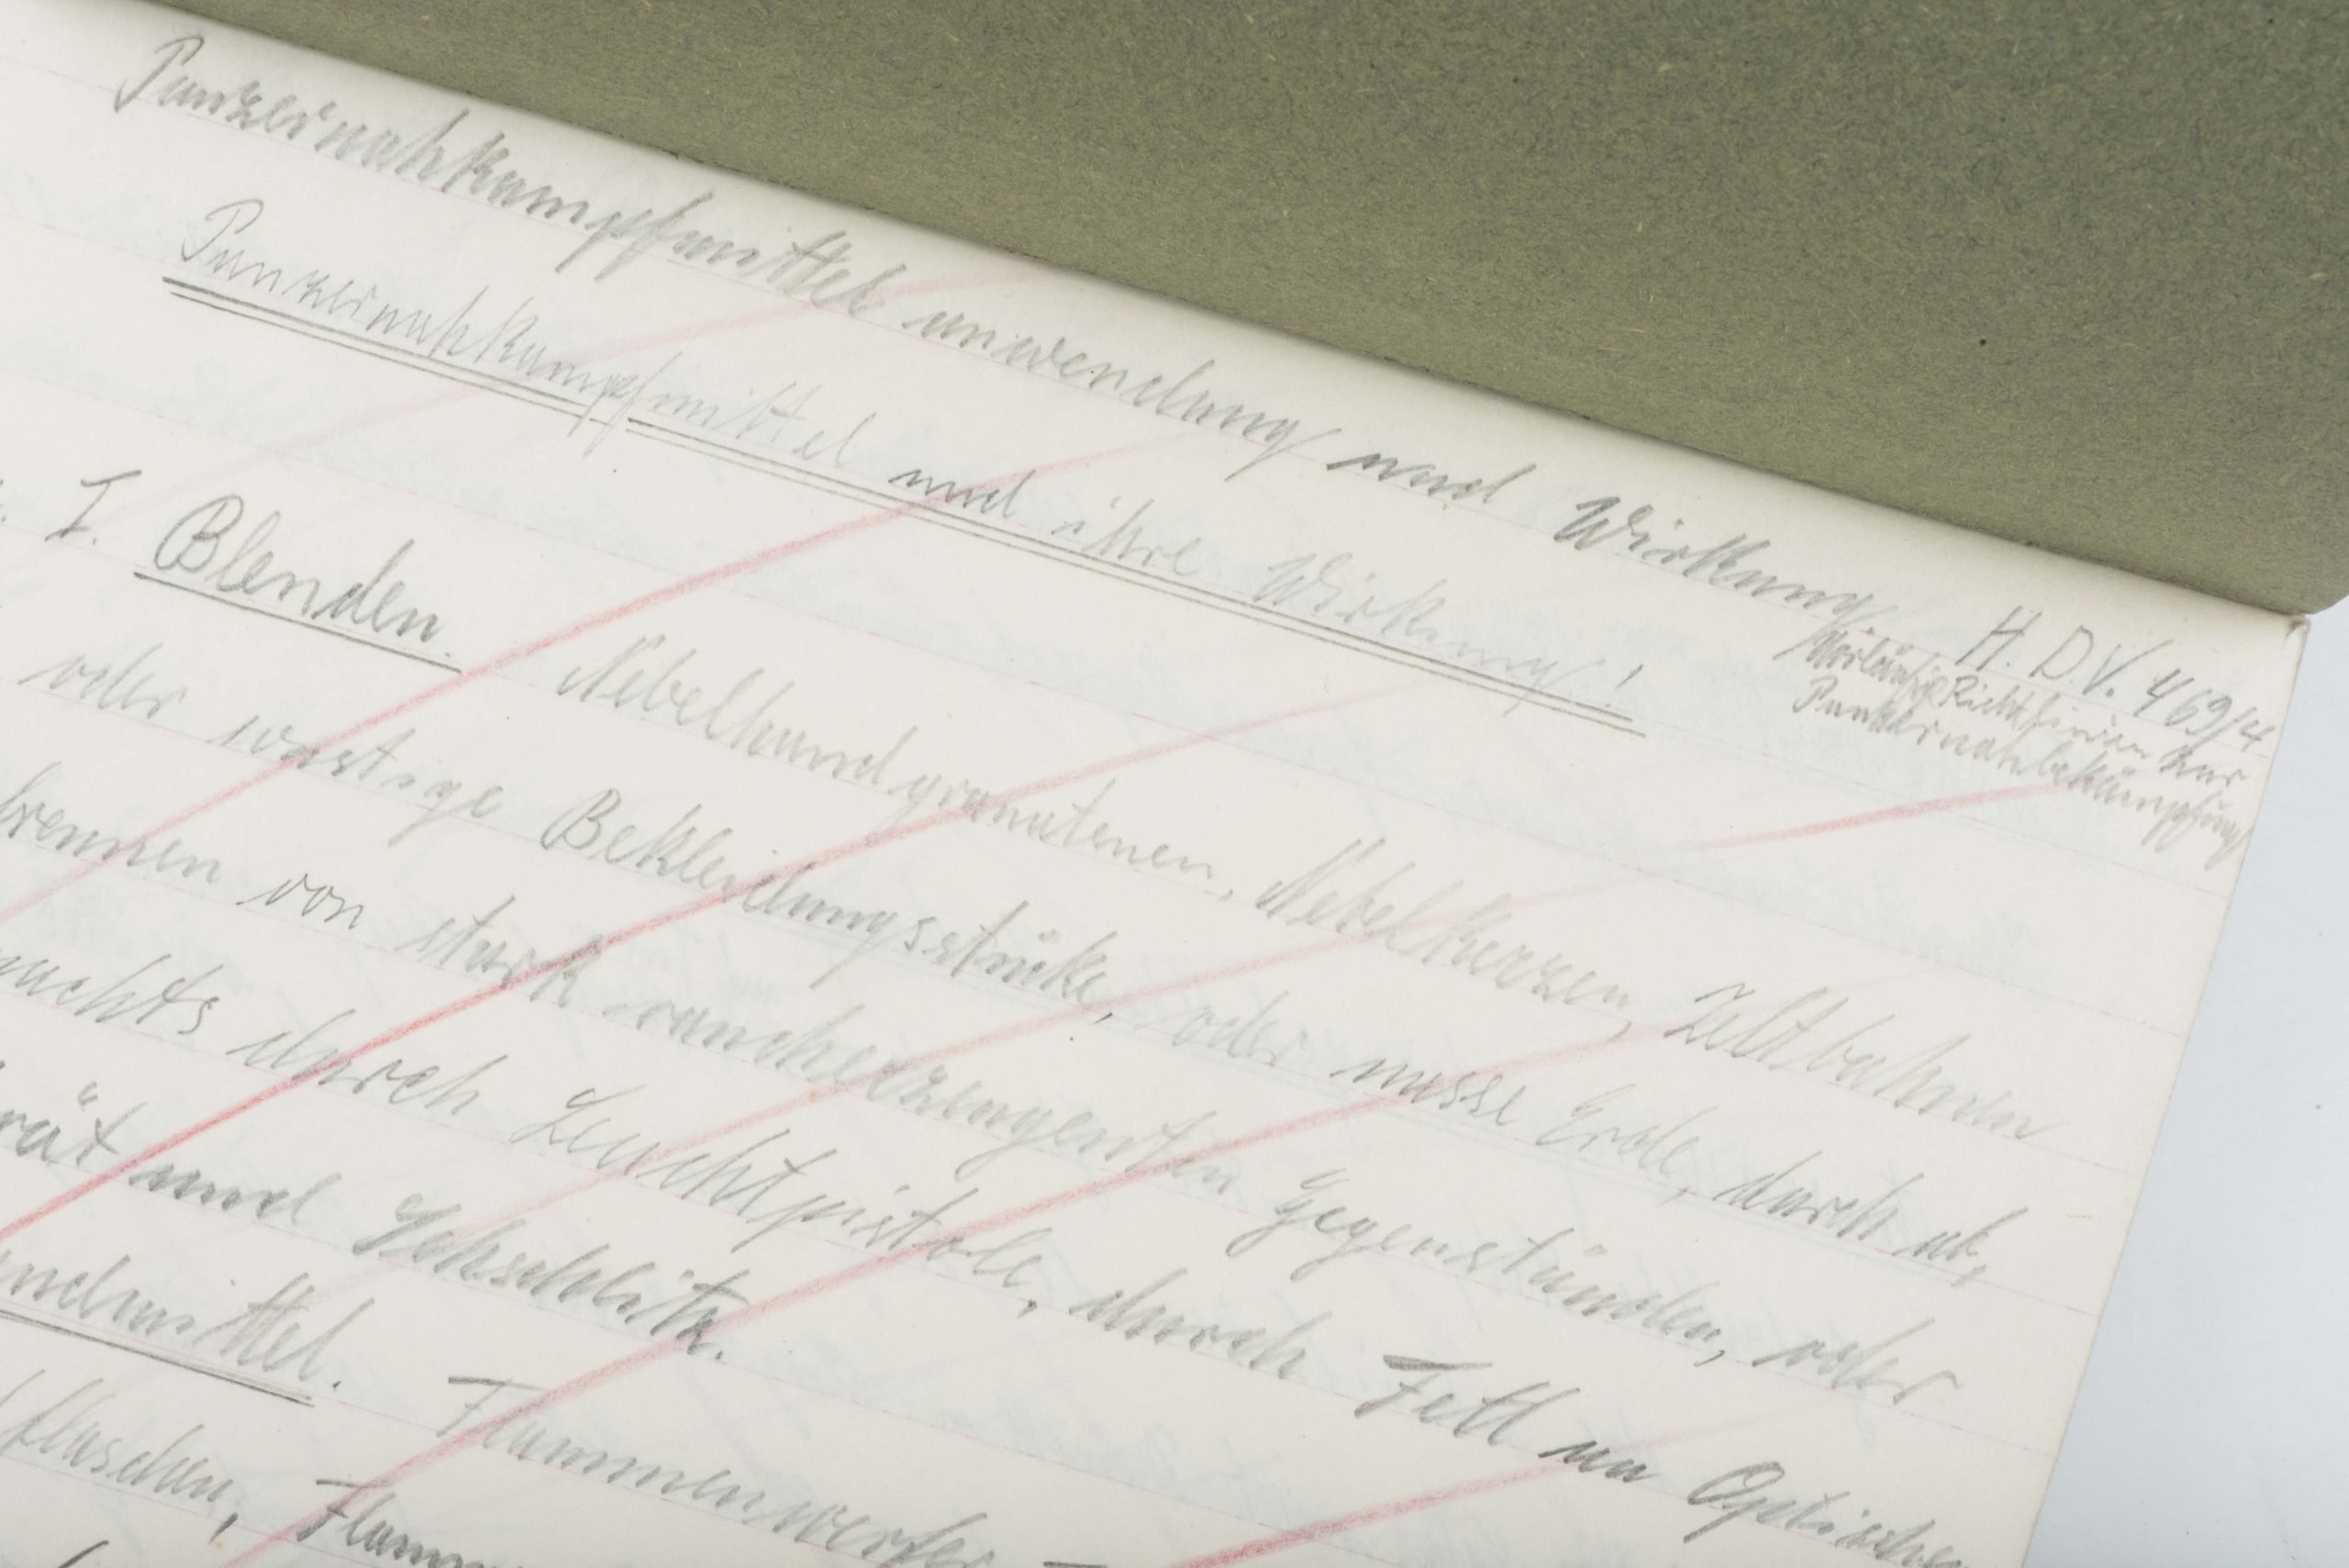 Panzernahkampfmittel anwendung und Wirkung
H.D.V. 469/4
Vorläufige Richtlinien zur
Panzernahbekämpfung
Panzernahkampfmittel und ihre Wirkung!
I. Blenden. Nebelhandgranatenen, Nebelkerzen, Zeltbahnen
oder sonstige Bekleidungsstüke, oder nasse Erde, durch ab,
brennen von stark raucherzeugenten Gegenständen, oder
nachts durch Leuchtpistole, durch Fett an Optischen
rät und Sehschlitz.
ndmittel. Flammenwerfer
flaschen, Flamm